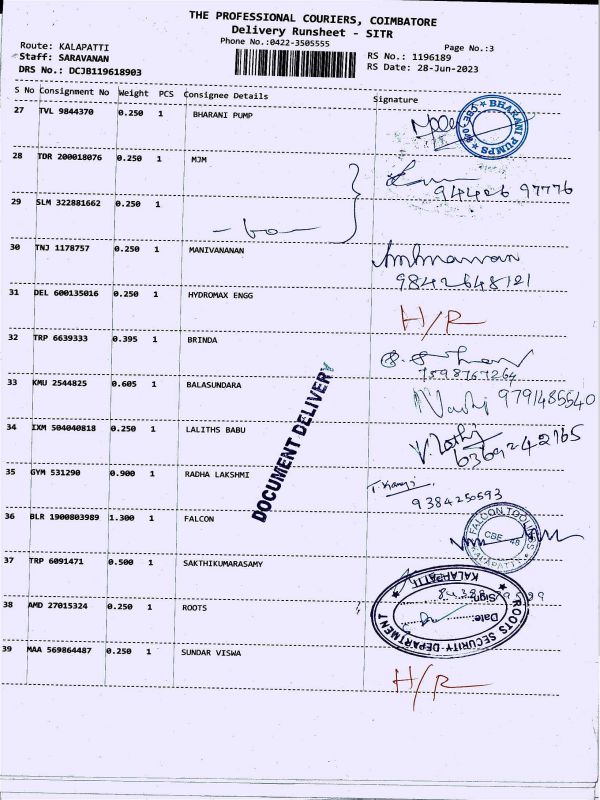 THE PROFESSIONAL COURIERS, COIMBATORE
Delivery Runsheet - SITR
Phone No.:0422-3505555
Page No.:3
Route: KALAPATTI
Staff: SARAVANAN
DRS No.: DCJB119618903
RS No.: 1196189
RS Date: 28-Jun-2023
S No Consignment No Weight PCS Consignee Details Signature
27 TVL 9844370 0.250 1 BHARANI PUMP
BHARANI PUMPS
28 TDR 200018076 0.250 1 MJM
94426 97776
29 SLM 322881662 0.250 1
30 TNJ 1178757 0.250 1 MANIVANANAN
9842648121
31 DEL 600135016 0.250 1 HYDROMAX ENGG
H/R
32 TRP 6639333 0.395 1 BRINDA
7598767264
33 KMU 2544825 0.605 1 BALASUNDARA
9791485540
34 IXM 504040818 0.250 1 LALITHS BABU
6369242165
35 GYM 531290 0.900 1 RADHA LAKSHMI
9384250593
36 BLR 1900803989 1.300 1 FALCON
FALCON TOOLINGS
CBE - 48
KALAPATTI
37 TRP 6091471 0.500 1 SAKTHIKUMARASAMY
38 AMD 27015324 0.250 1 ROOTS
ROOTS SECURITY DEPARTMENT
KALAPATTI
Sign:
Date:
39 MAA 569864487 0.250 1 SUNDAR VISWA
H/R
DOCUMENT DELIVERY